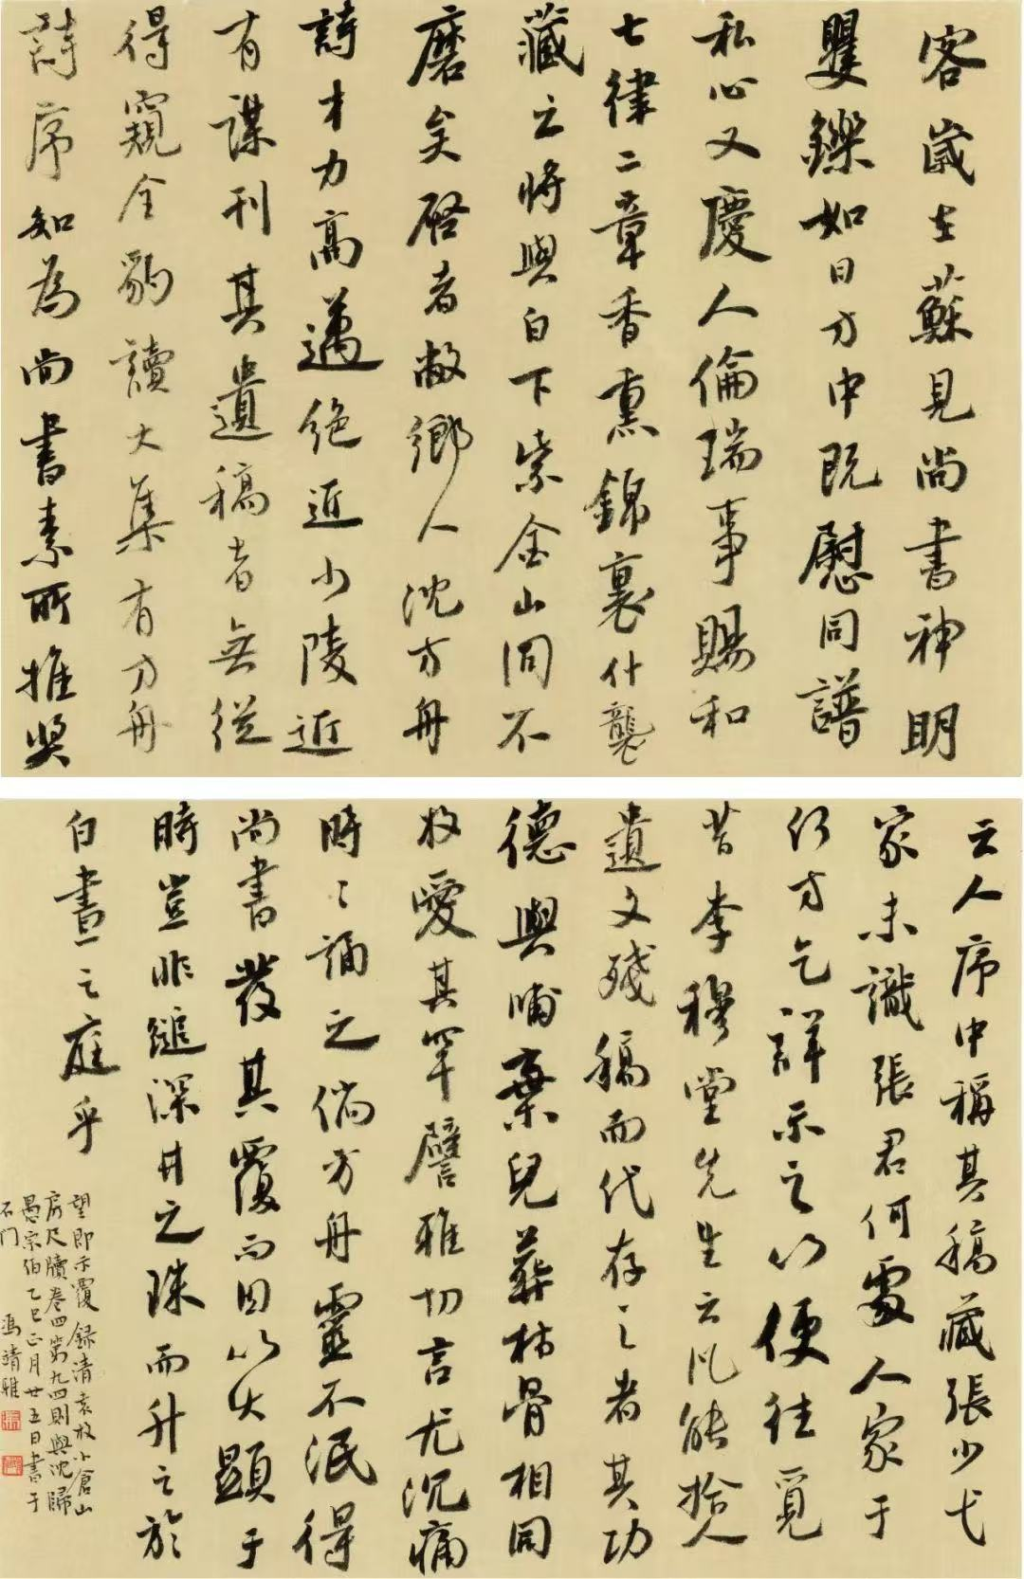 客歲在蘇見尚書神明
矍鑠如日方中既慰同譜
私心又慶人倫瑞事賜和
七律二章香熏錦裹什襲
藏之將與白下紫金山同不
磨矣啓者敝鄉人沈方舟
詩才力高邁絕近少陵近
有謀刊其遺稿者無從
得窺全豹讀大集有方舟
詩序知為尚書素所推奨
云人序中稱其稿藏張少弋
家未識張君何處人家于
何方乞詳示之以便往覓
昔李穆堂先生云凡能拾人
遺文殘稿而代存之者其功
德與哺棄兒葬枯骨相同
枚愛其罕譬雅切言尤沉痛
時時誦之倘方舟靈不泯得
尚書發其覆而因以大顯于
時豈非縋深井之珠而升之於
白晝之庭乎
望即示覆 錄清袁枚小倉山
房尺牘卷四第九四則與沈歸
愚宗伯乙巳正月廿五日書于
石門 馮靖雅